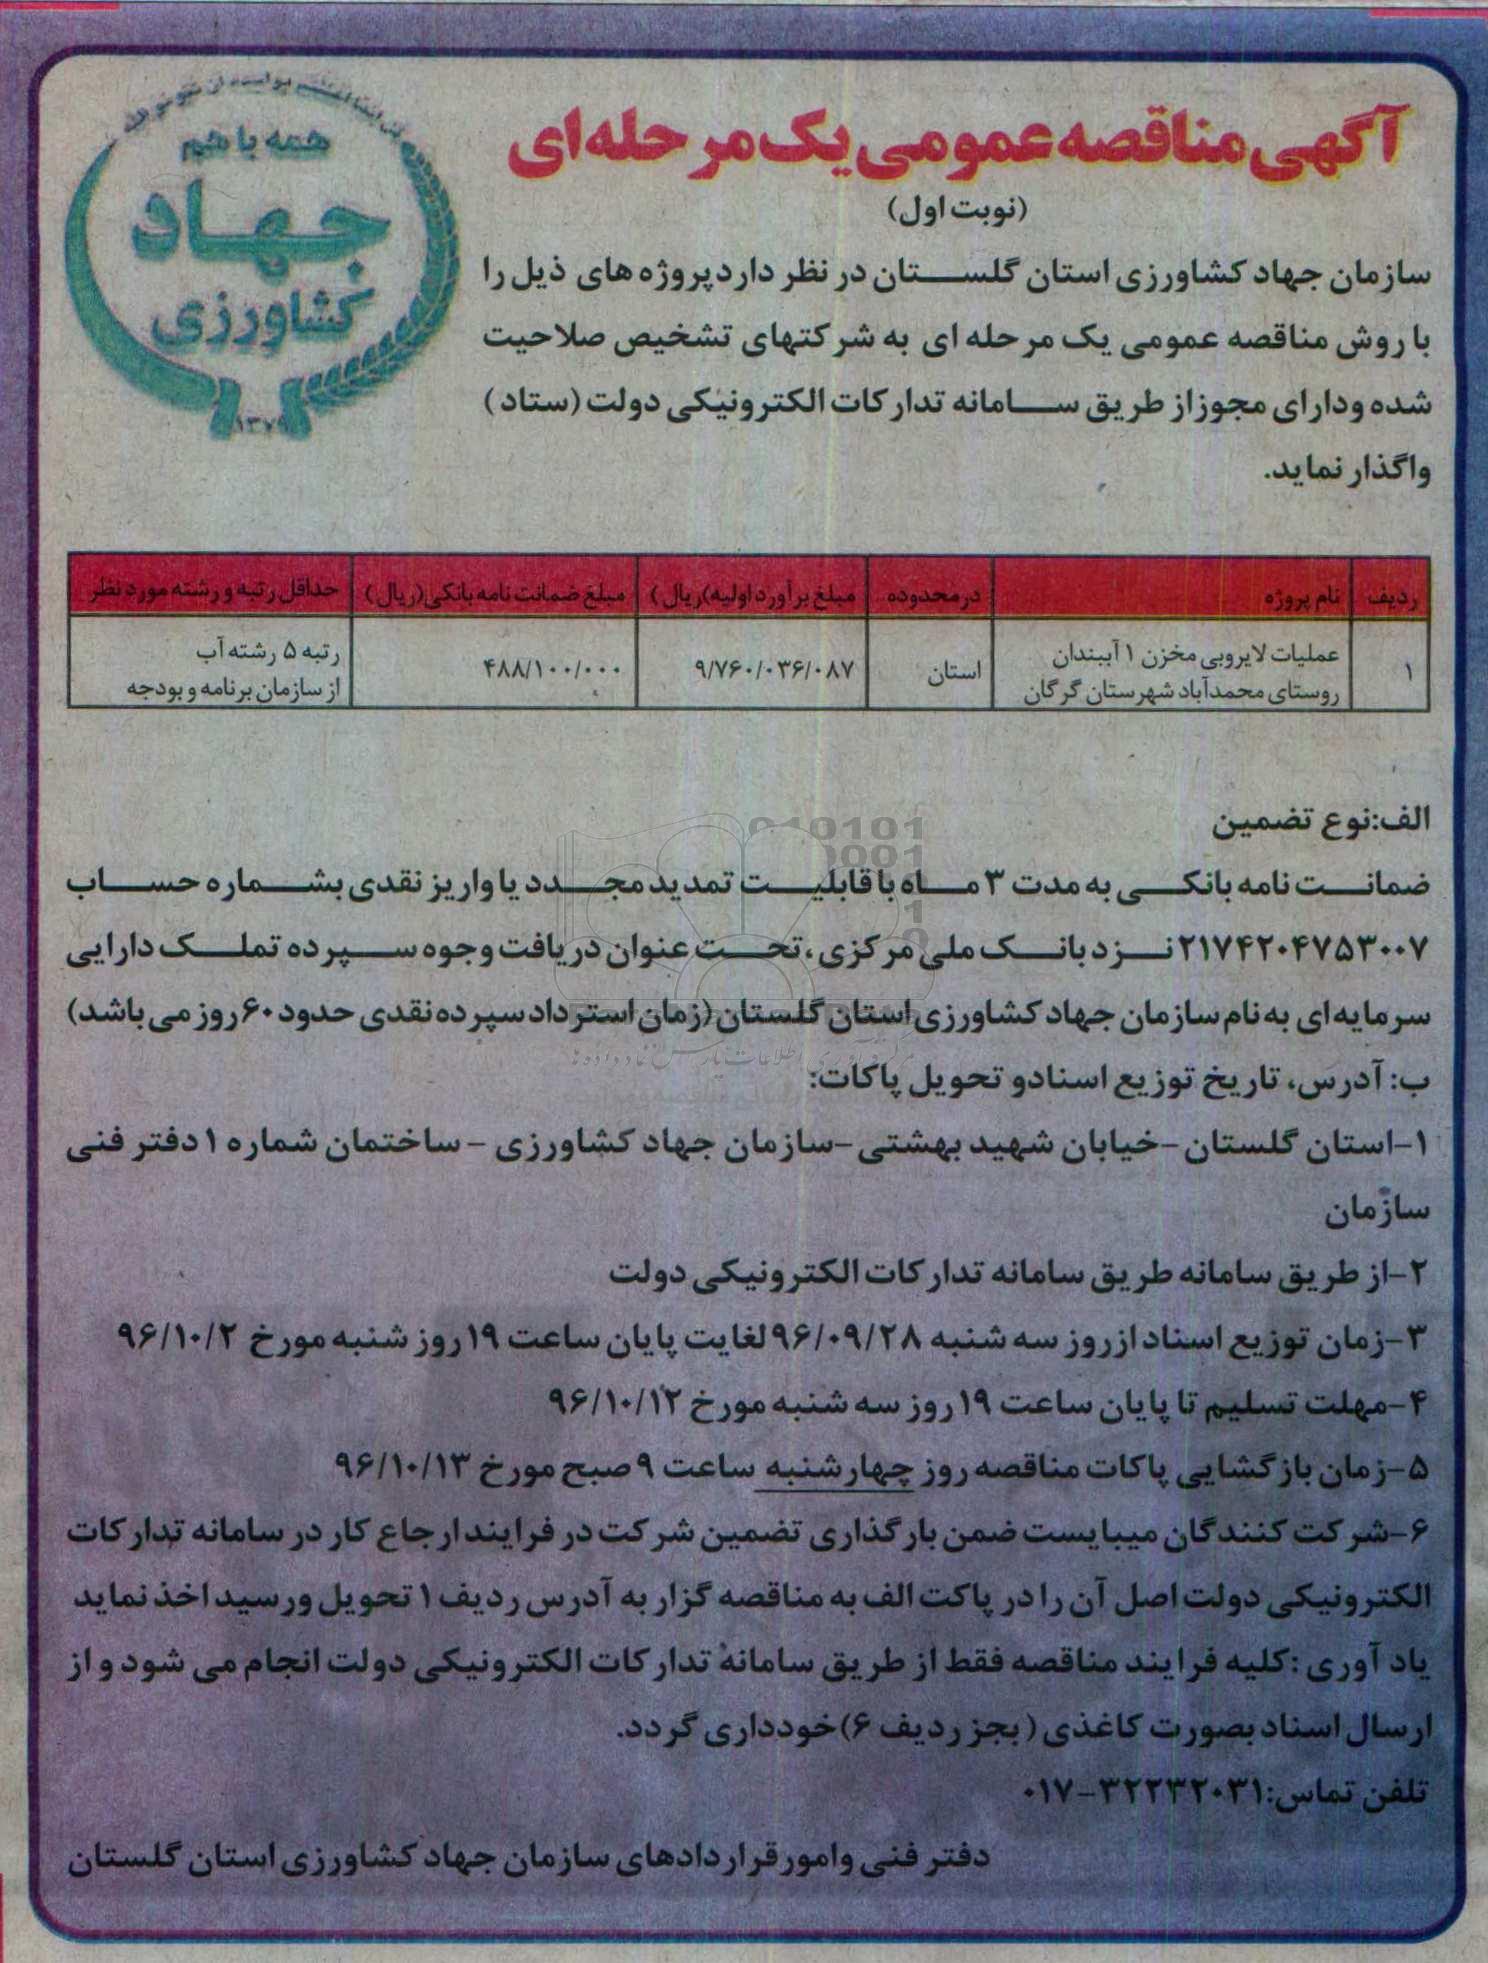 آگهی مناقصه عمومی یک مرحله‌ای
(نوبت اول)
همه با هم
جهاد
کشاورزی
سازمان جهاد کشاورزی استان گلستان در نظر دارد پروژه های ذیل را
با روش مناقصه عمومی یک مرحله ای به شرکتهای تشخیص صلاحیت
شده ودارای مجوز از طریق سامانه تدارکات الکترونیکی دولت (ستاد)
واگذار نماید.
ردیف نام پروژه در محدوده مبلغ برآورد اولیه)ریال) مبلغ ضمانت نامه بانکی(ریال) حداقل رتبه و رشته مورد نظر
۱ عملیات لایروبی مخزن ۱ آببندان استان ۹/۷۶۰/۰۳۶/۰۸۷ ۴۸۸/۱۰۰/۰۰۰ رتبه ۵ رشته آب
روستای محمدآباد شهرستان گرگان از سازمان برنامه و بودجه
الف:نوع تضمین
ضمانت نامه بانکی به مدت ۳ ماه با قابلیت تمدید مجدد یا واریز نقدی بشماره حساب
۲۱۷۴۲۰۴۷۵۳۰۰۷ نزد بانک ملی مرکزی ،تحت عنوان دریافت وجوه سپرده تملک دارایی
سرمایه‌ای به نام سازمان جهاد کشاورزی استان گلستان (زمان استرداد سپرده نقدی حدود ۶۰ روز می باشد)
ب: آدرس، تاریخ توزیع اسنادو تحویل پاکات:
۱-استان گلستان -خیابان شهید بهشتی -سازمان جهاد کشاورزی - ساختمان شماره ۱ دفتر فنی
سازمان
۲-از طریق سامانه طریق سامانه تدارکات الکترونیکی دولت
۳-زمان توزیع اسناد ازروز سه شنبه ۹۶/۰۹/۲۸ لغایت پایان ساعت ۱۹ روز شنبه مورخ ۹۶/۱۰/۲
۴-مهلت تسلیم تا پایان ساعت ۱۹ روز سه شنبه مورخ ۹۶/۱۰/۱۲
۵-زمان بازگشایی پاکات مناقصه روز چهارشنبه ساعت ۹ صبح مورخ ۹۶/۱۰/۱۳
۶-شرکت کنندگان میبایست ضمن بارگذاری تضمین شرکت در فرایند ارجاع کار در سامانه تدارکات
الکترونیکی دولت اصل آن را در پاکت الف به مناقصه گزار به آدرس ردیف ۱ تحویل ورسید اخذ نماید
یاد آوری :کلیه فرایند مناقصه فقط از طریق سامانه تدارکات الکترونیکی دولت انجام می شود و از
ارسال اسناد بصورت کاغذی ( بجز ردیف ۶)خودداری گردد.
تلفن تماس:۳۲۲۳۲۰۳۱-۰۱۷
دفتر فنی وامورقراردادهای سازمان جهاد کشاورزی استان گلستان